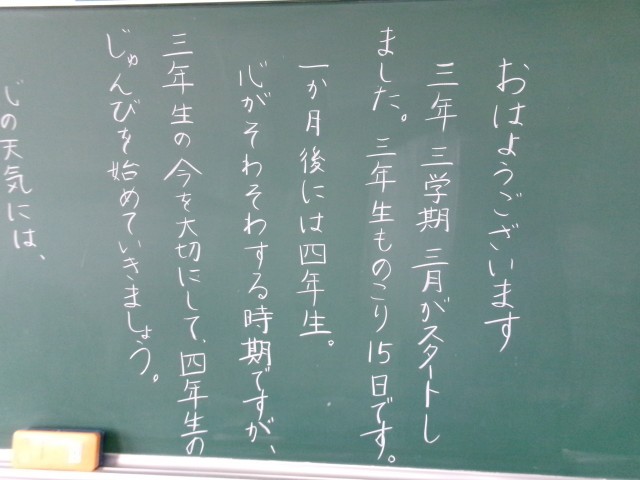 おはようございます
三年 三学期 三月がスタートし
ました。三年生ものこり15日です。
一か月後には四年生。
心がそわそわする時期ですが、
三年生の今を大切にして、四年生の
じゅんびを始めていきましょう。
じの天気には、